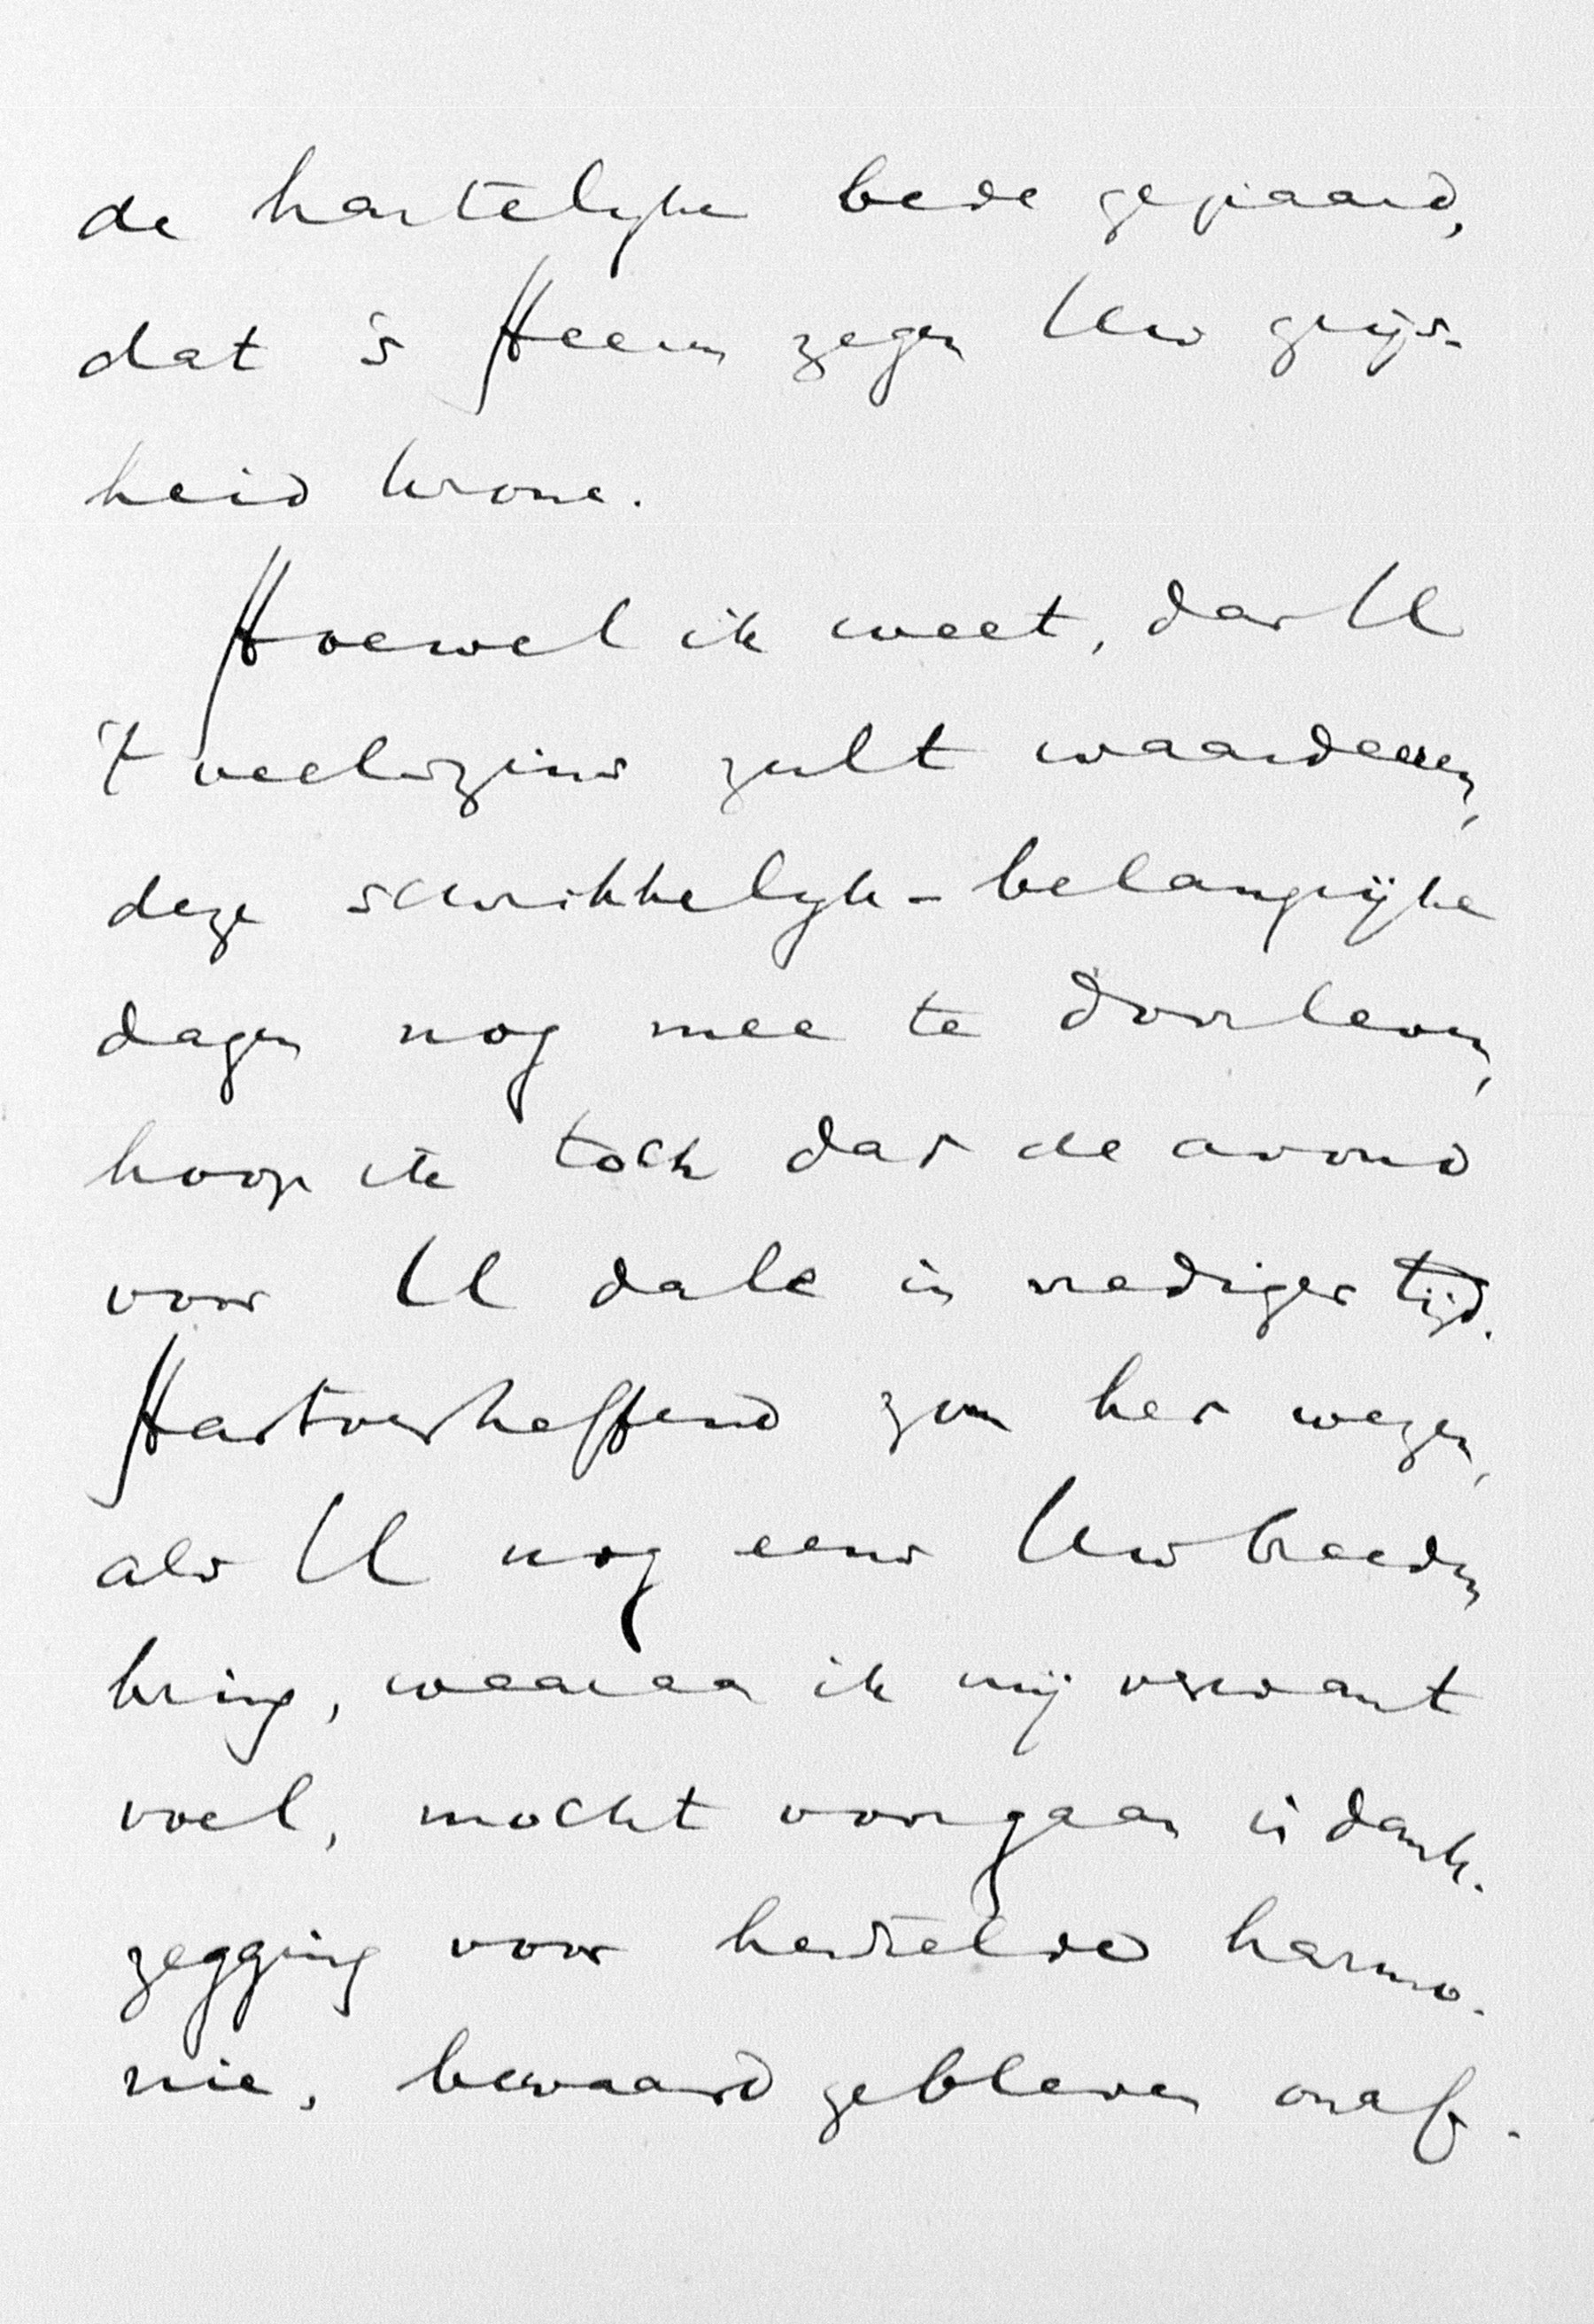 de hartelyke bede gepaard,
dat 's Heeren zegen Uw grijs-
heid krone.
Hoewel ik weet, dat U
't veelszins zult waardeeren,
deze schrikkelyk-belangrijke
dagen nog mee te doorleven,
hoop ik toch dat de avond
voor U dale in vrediger tijd.
Hartverheffend zou het wezen,
als U nog eens Uw breeden
kring, waaraan ik mij verwant
voel, mocht voorgaan in dank-
zegging voor herstelde harmo-
nie, bewaard gebleven onaf-